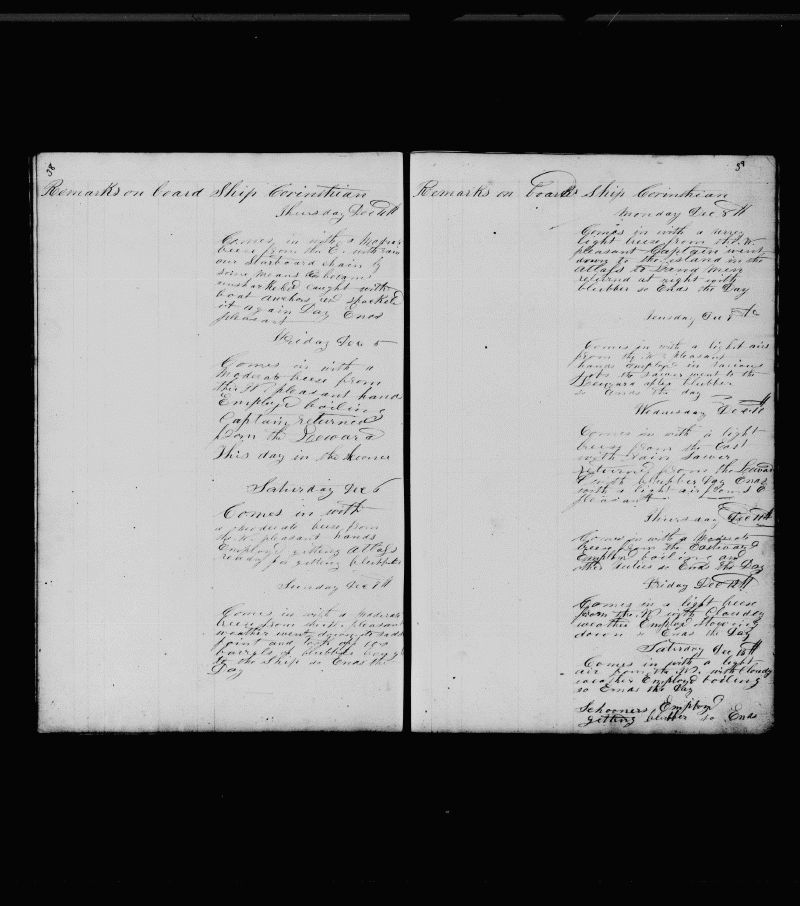 58
Remarks on board Ship Corinthian
Thursday Dec 4th
Comes in with a
breze from the E. with rain
our Starboard chain by
some means
unshackeled caught with
boat anchors and shackeld
it again Day Ends
pleasant
Friday Dec 5
Comes in with a
Moderate breze from
the W pleasant hands
Employd boiling
Captain returned
from the Leward
This day in the Scooner
Saturday Dec 6
Comes in with
a moderate breze from
the W. pleasant hands
Employd getting Attlass
ready for getting blubber
Sunday Dec 7th
Comes in with a Moderate
breze from the pleasant
weather went down to
point and took off
barrels of blubber
to the Ship so Ends the
Day
Remarks on board Ship Corinthian
Monday Dec 8th
Comes in with a very
light breze from the W.
pleasant Captain went
down to the island in the
Attlass to Send men
returnd at night with
blubber so Ends the Day
Teusday Dec 9
Comes in with a light airs
from the W. pleasant
hands employd in various
jobs the Sawer went to the
Leeward after blubber
so Ends the day
Wednsday Dec 10
Comes in with a light
breze from the East
with rain Sawer
returned from the Leeward
with blubber Day Ends
with a light air from S E
pleasant
Thursday Dec 11th
Comes in with a Moderate
breze from the Eastward
Employd boiling and
other duties so Ends the Day
Friday Dec 12th
Comes in a light breze
from the W with Cloudey
weather Employd Stowing
down so Ends the Day
Saturday Dec 13th
Comes in with a light
air from the W. with Cloudy
weather Employd boiling
so Ends the Day
Schooners Employd
getting blubber so Ends